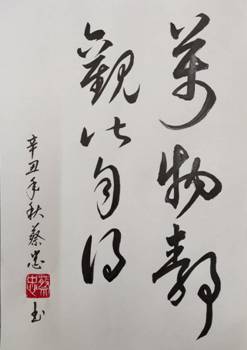 萬物靜
觀皆自得
辛丑年秋蔡忠书